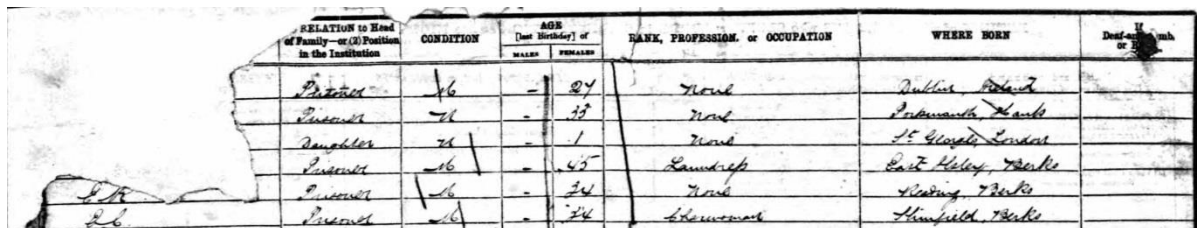 RELATION to Head of Family—or (2) Position in the Institution CONDITION AGE [last Birthday] of MALES FEMALES RANK, PROFESSION, or OCCUPATION WHERE BORN If Deaf-and-Dumb or
Prisoner M - 27 None Dublin, Ireland
Prisoner U - 33 None Portsmouth, Hants
Daughter U - 1 None St Georges, London
Prisoner M - 45 Laundress East Ilsley, Berks
E.K. Prisoner M - 34 None Reading, Berks
Prisoner M - 34 Charwoman Berks